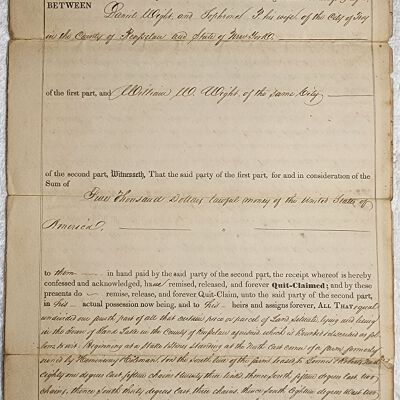 BETWEEN Daniel Wight, and Sophronel F. his wife, of the City of Troy
in the County of Rensselaer and State of New York.
of the first part, and William W. Wight, of the same City
of the second part, Witnesseth, That the said party of the first part, for and in consideration of the
Sum of Thousand Dollars lawful money of the United States of
America
to them in hand paid by the said party of the second part, the receipt whereof is hereby
confessed and acknowledged, have remised, released, and forever Quit-Claimed; and by these
presents do remise, release, and forever Quit-Claim, unto the said party of the second part,
in his actual possession now being, and to his heirs and assigns forever, ALL THAT equal
undivided one fourth part of all that certain piece or parcel of Land situate lying and being
in the town of Lake in the County of Rensselaer aforesaid which is Bounded described as fol
lows to wit. Beginning at a Stake & Stones Standing at the North East corner of a farm formerly
owned by Hickman, the South line of the farm leased to James
eighty one degrees east, fifteen chains & twenty three links, thence South, fifteen degrees East two
chains, thence South thirty degrees East, three chains, thence South eighteen degrees West two